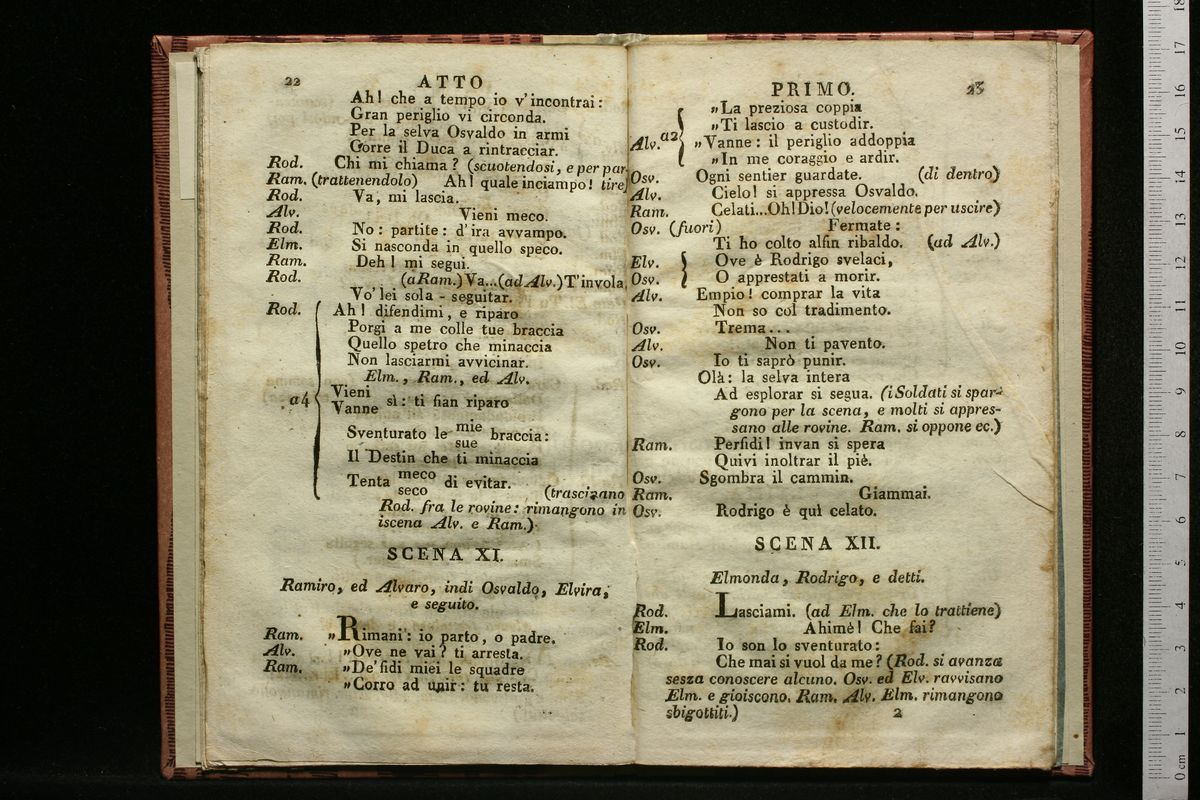 22 ATTO
Ah! che a tempo io v'incontrai:
Gran periglio vi circonda.
Per la selva Osvaldo in armi
Corre il Duca a rintracciar.
Rod. Chi mi chiama? (scuotendosi, e per par
Ram. (trattenendolo) Ah! quale inciampo! tire)
Rod. Va, mi lascia.
Alv. Vieni meco.
Rod. No: partite: d'ira avvampo.
Elm. Si nasconda in quello speco.
Ram. Deh! mi segui.
Rod. (a Ram.) Va...(ad Alv.) T'invola
Vo' lei sola - seguitar.
Rod. Ah! difendimi, e riparo
Porgi a me colle tue braccia
Quello spetro che minaccia
Non lasciarmi avvicinar.
Elm., Ram., ed Alv.
a4 Vieni
Vanne sì: ti fian riparo
Sventurato le mie
sue braccia:
Il Destin che ti minaccia
Tenta meco
seco di evitar. (trascinano
Rod. fra le rovine: rimangono in
iscena Alv. e Ram.)
SCENA XI.
Ramiro, ed Alvaro, indi Osvaldo, Elvira,
e seguito.
Ram. „Rimani: io parto, o padre.
Alv. „Ove ne vai? ti arresta.
Ram. „De'fidi miei le squadre
„Corro ad unir: tu resta.
PRIMO. 23
„La preziosa coppia
„Ti lascio a custodir.
Alv. a2 „Vanne: il periglio addoppia
„In me coraggio e ardir.
Osv. Ogni sentier guardate. (di dentro)
Alv. Cielo! si appressa Osvaldo.
Ram. Celati...Oh! Dio! (velocemente per uscire)
Osv. (fuori) Fermate:
Ti ho colto alfin ribaldo. (ad Alv.)
Elv. Ove è Rodrigo svelaci,
Osv. O apprestati a morir.
Alv. Empio! comprar la vita
Non so col tradimento.
Osv. Trema...
Alv. Non ti pavento.
Osv. Io ti saprò punir.
Olà: la selva intera
Ad esplorar si segua. (i Soldati si spar-
gono per la scena, e molti si appres-
sano alle rovine. Ram. si oppone ec.)
Ram. Perfidi! invan si spera
Quivi inoltrar il piè.
Osv. Sgombra il cammin.
Ram. Giammai.
Osv. Rodrigo è quì celato.
SCENA XII.
Elmonda, Rodrigo, e detti.
Rod. Lasciami. (ad Elm. che lo trattiene)
Elm. Ahimè! Che fai?
Rod. Io son lo sventurato:
Che mai si vuol da me? (Rod. si avanza
sesza conoscere alcuno. Osv. ed Elv. ravvisano
Elm. e gioiscono. Ram. Alv. Elm. rimangono
sbigottiti.) 2
0 cm 1 2 3 4 5 6 7 8 9 10 11 12 13 14 15 16 17 18